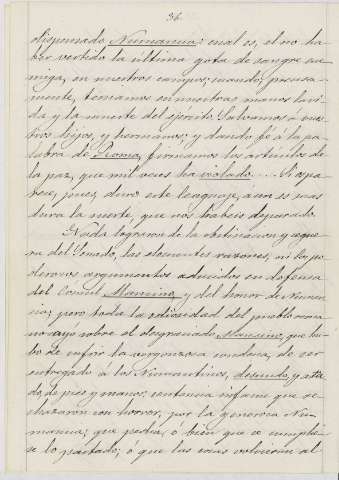 36.
dispensado Numancia: cual es, el no ha-
ber vertido la última gota de sangre ene-
miga, en nuestros campos; cuando, precisa-
mente, teniamos en nuestras manos la vi-
da y la muerte del ejército. Salvamos á vues-
tros hijos, y hermanos; y dando fé á la pa-
labra de Roma, firmamos los artículos de
la paz, que mil veces ha violado.... Si os pa-
rece, pues, duro este lenguaje, aun es mas
dura la suerte, que nos habeis deparado.
Nada lograron de la obstinacion y cegue-
ra del Senado, las elocuentes razones, ni los po-
derosos argumentos aducidos en defensa
del Cónsul Mancino, y del honor de Numan-
cia; pero toda la odiosidad del pueblo roma-
no cayó sobre el desgraciado Mancino, que hu-
bo de sufrir la vergonzosa condena, de ser
entregado á los Numantinos, desnudo, y ata-
do de pies y manos: sentencia infame que re-
chazaron con horror, por la generosa Nu-
mancia; que pedia, ó bien que se cumplie-
se lo pactado; ó que las cosas volvieran al